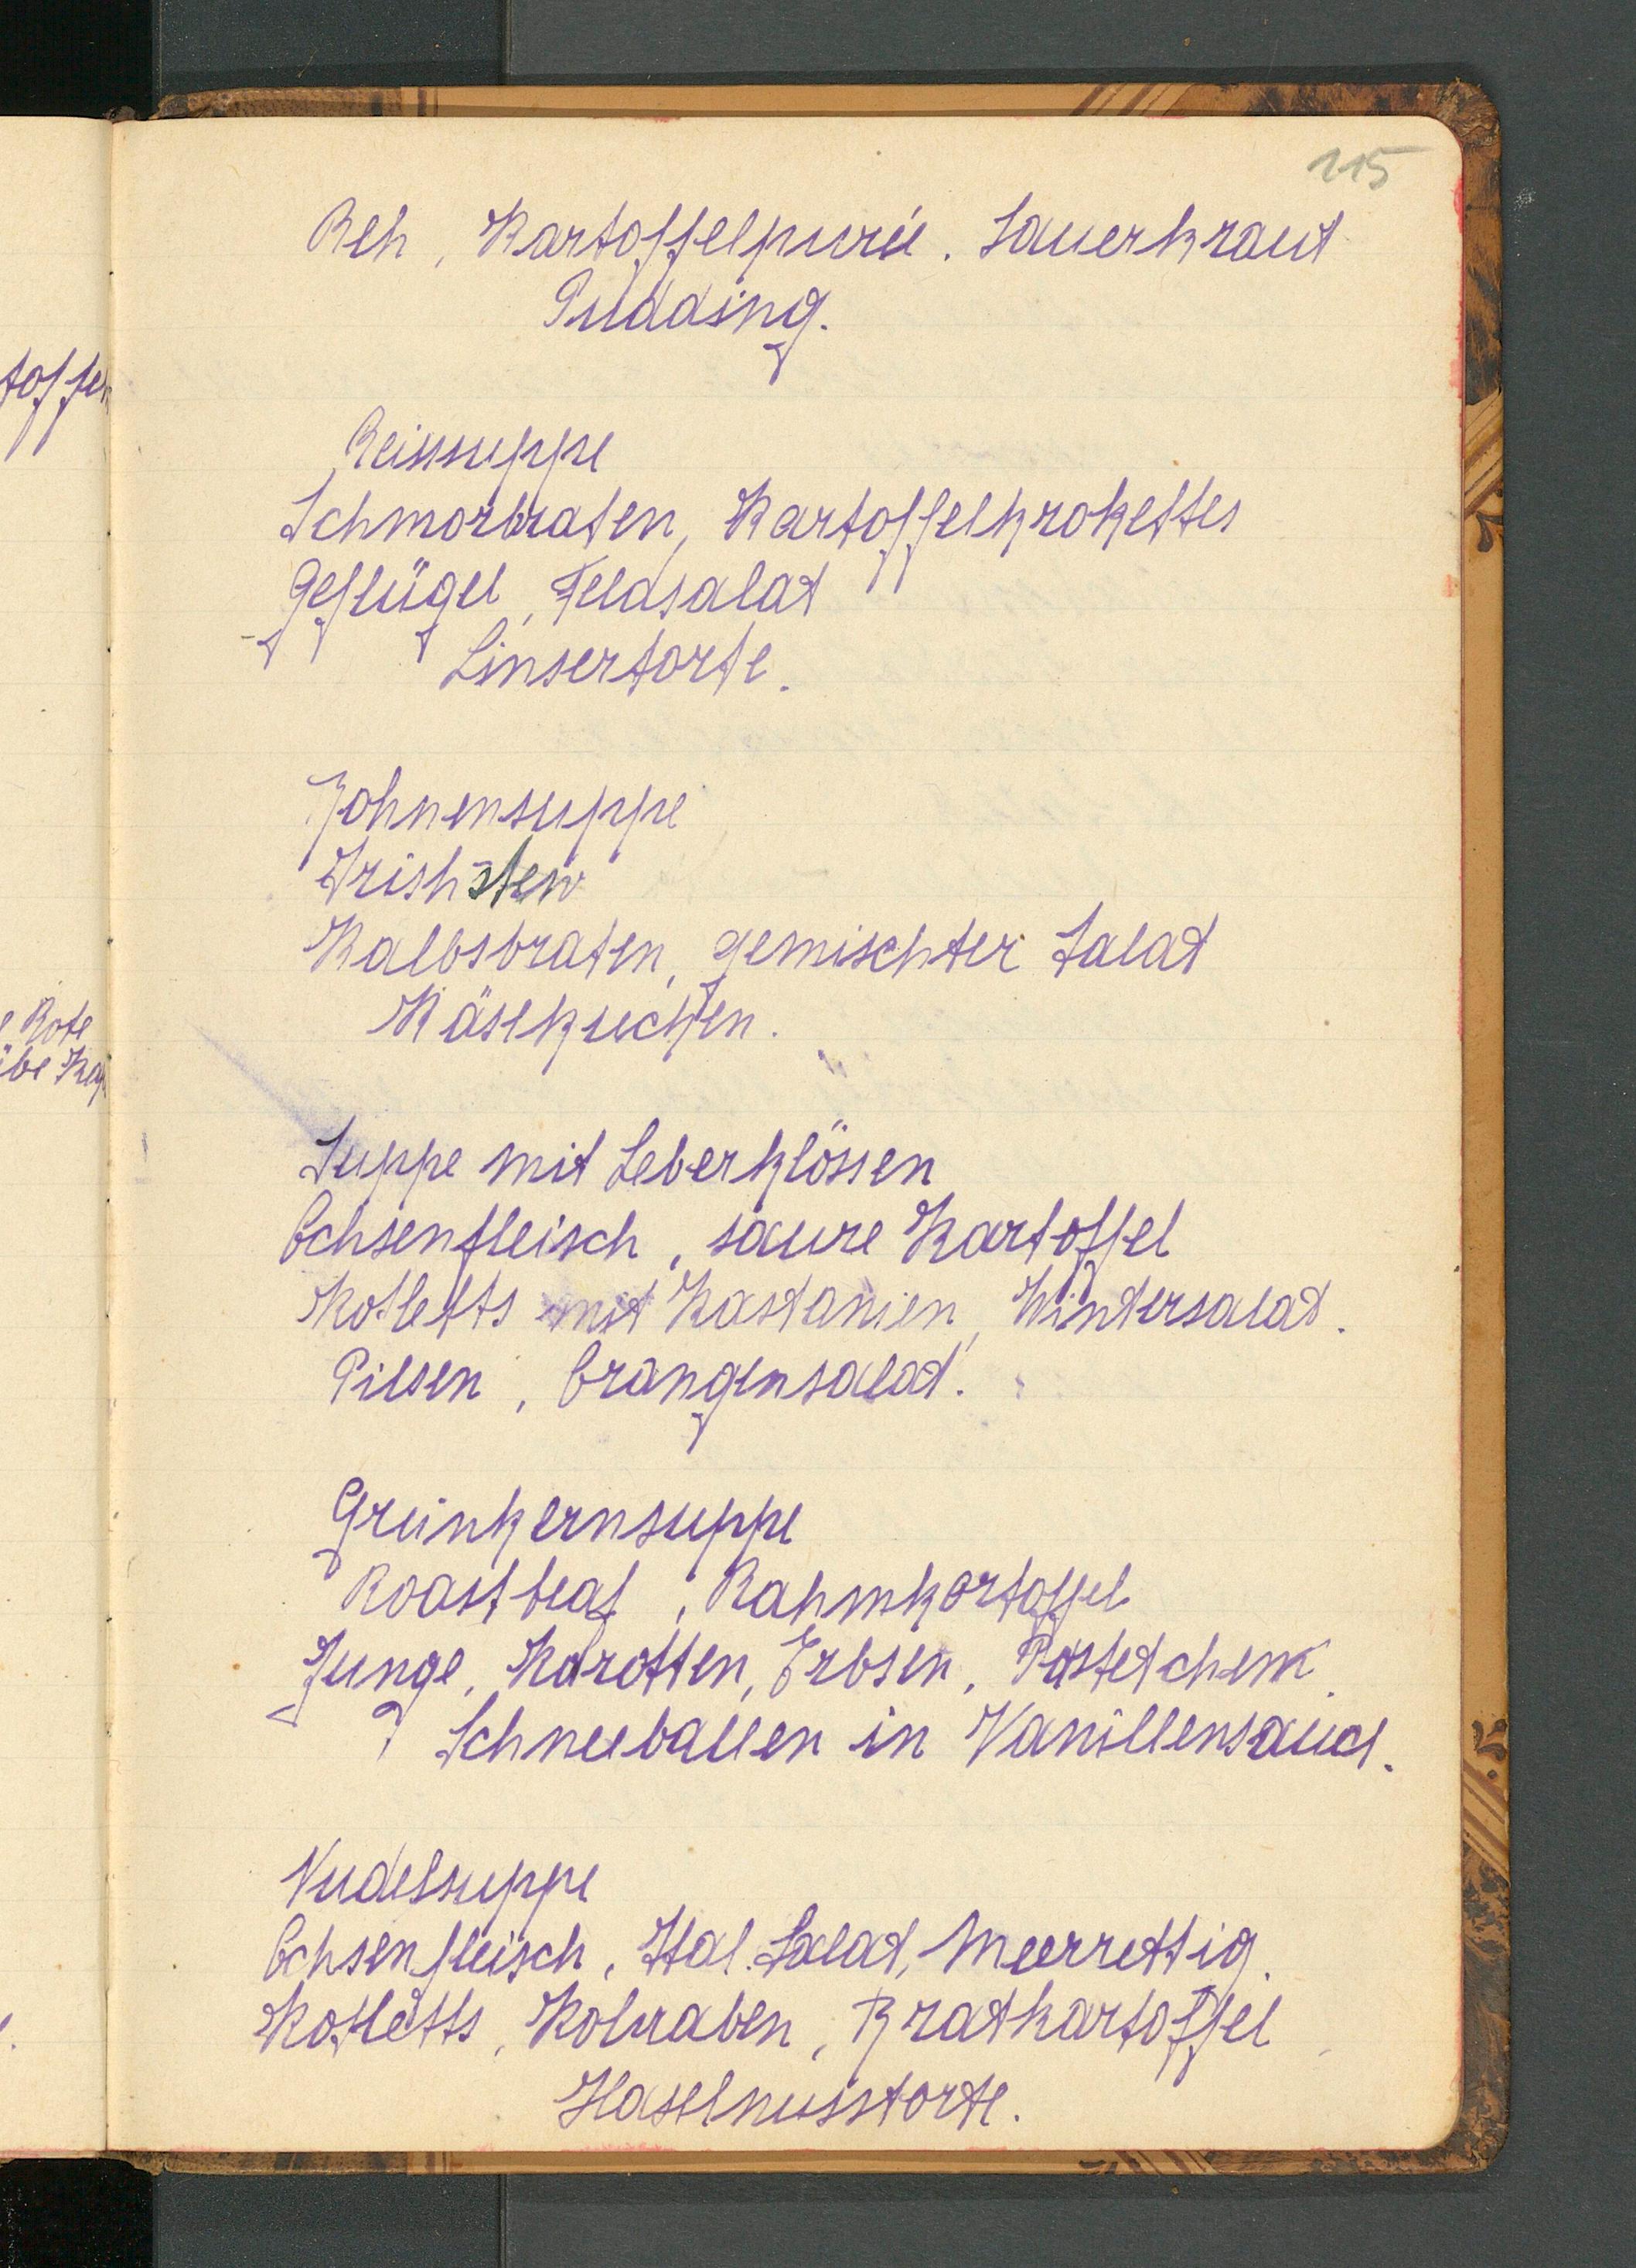 215
Reh, Kartoffelpurée. Sauerkraut
Pudding.
Reissuppe
Schmorbraten, Kartoffelkrokettes
Geflügel, Feldsalat
Linsertorte.
Bohnensuppe
Irish stew
Kalbsbraten, gemischter Salat
Käsekuchen.
Suppe mit Leberklössen
Ochsenfleisch, saure Kartoffel
Kotletts mit Kastanien, Wintersalat.
Orangensalat.
Grünkernsuppe
Roastbeaf, Rahmkartoffel
Zunge, Karotten, Erbsen,
Schneeballen in
Nudelsuppe
Ochsenfleisch, Ital. Salat, Meerrettig.
Kotletts, Kolraben, Bratkartoffel
Haselnusstorte.
toffel
Rote